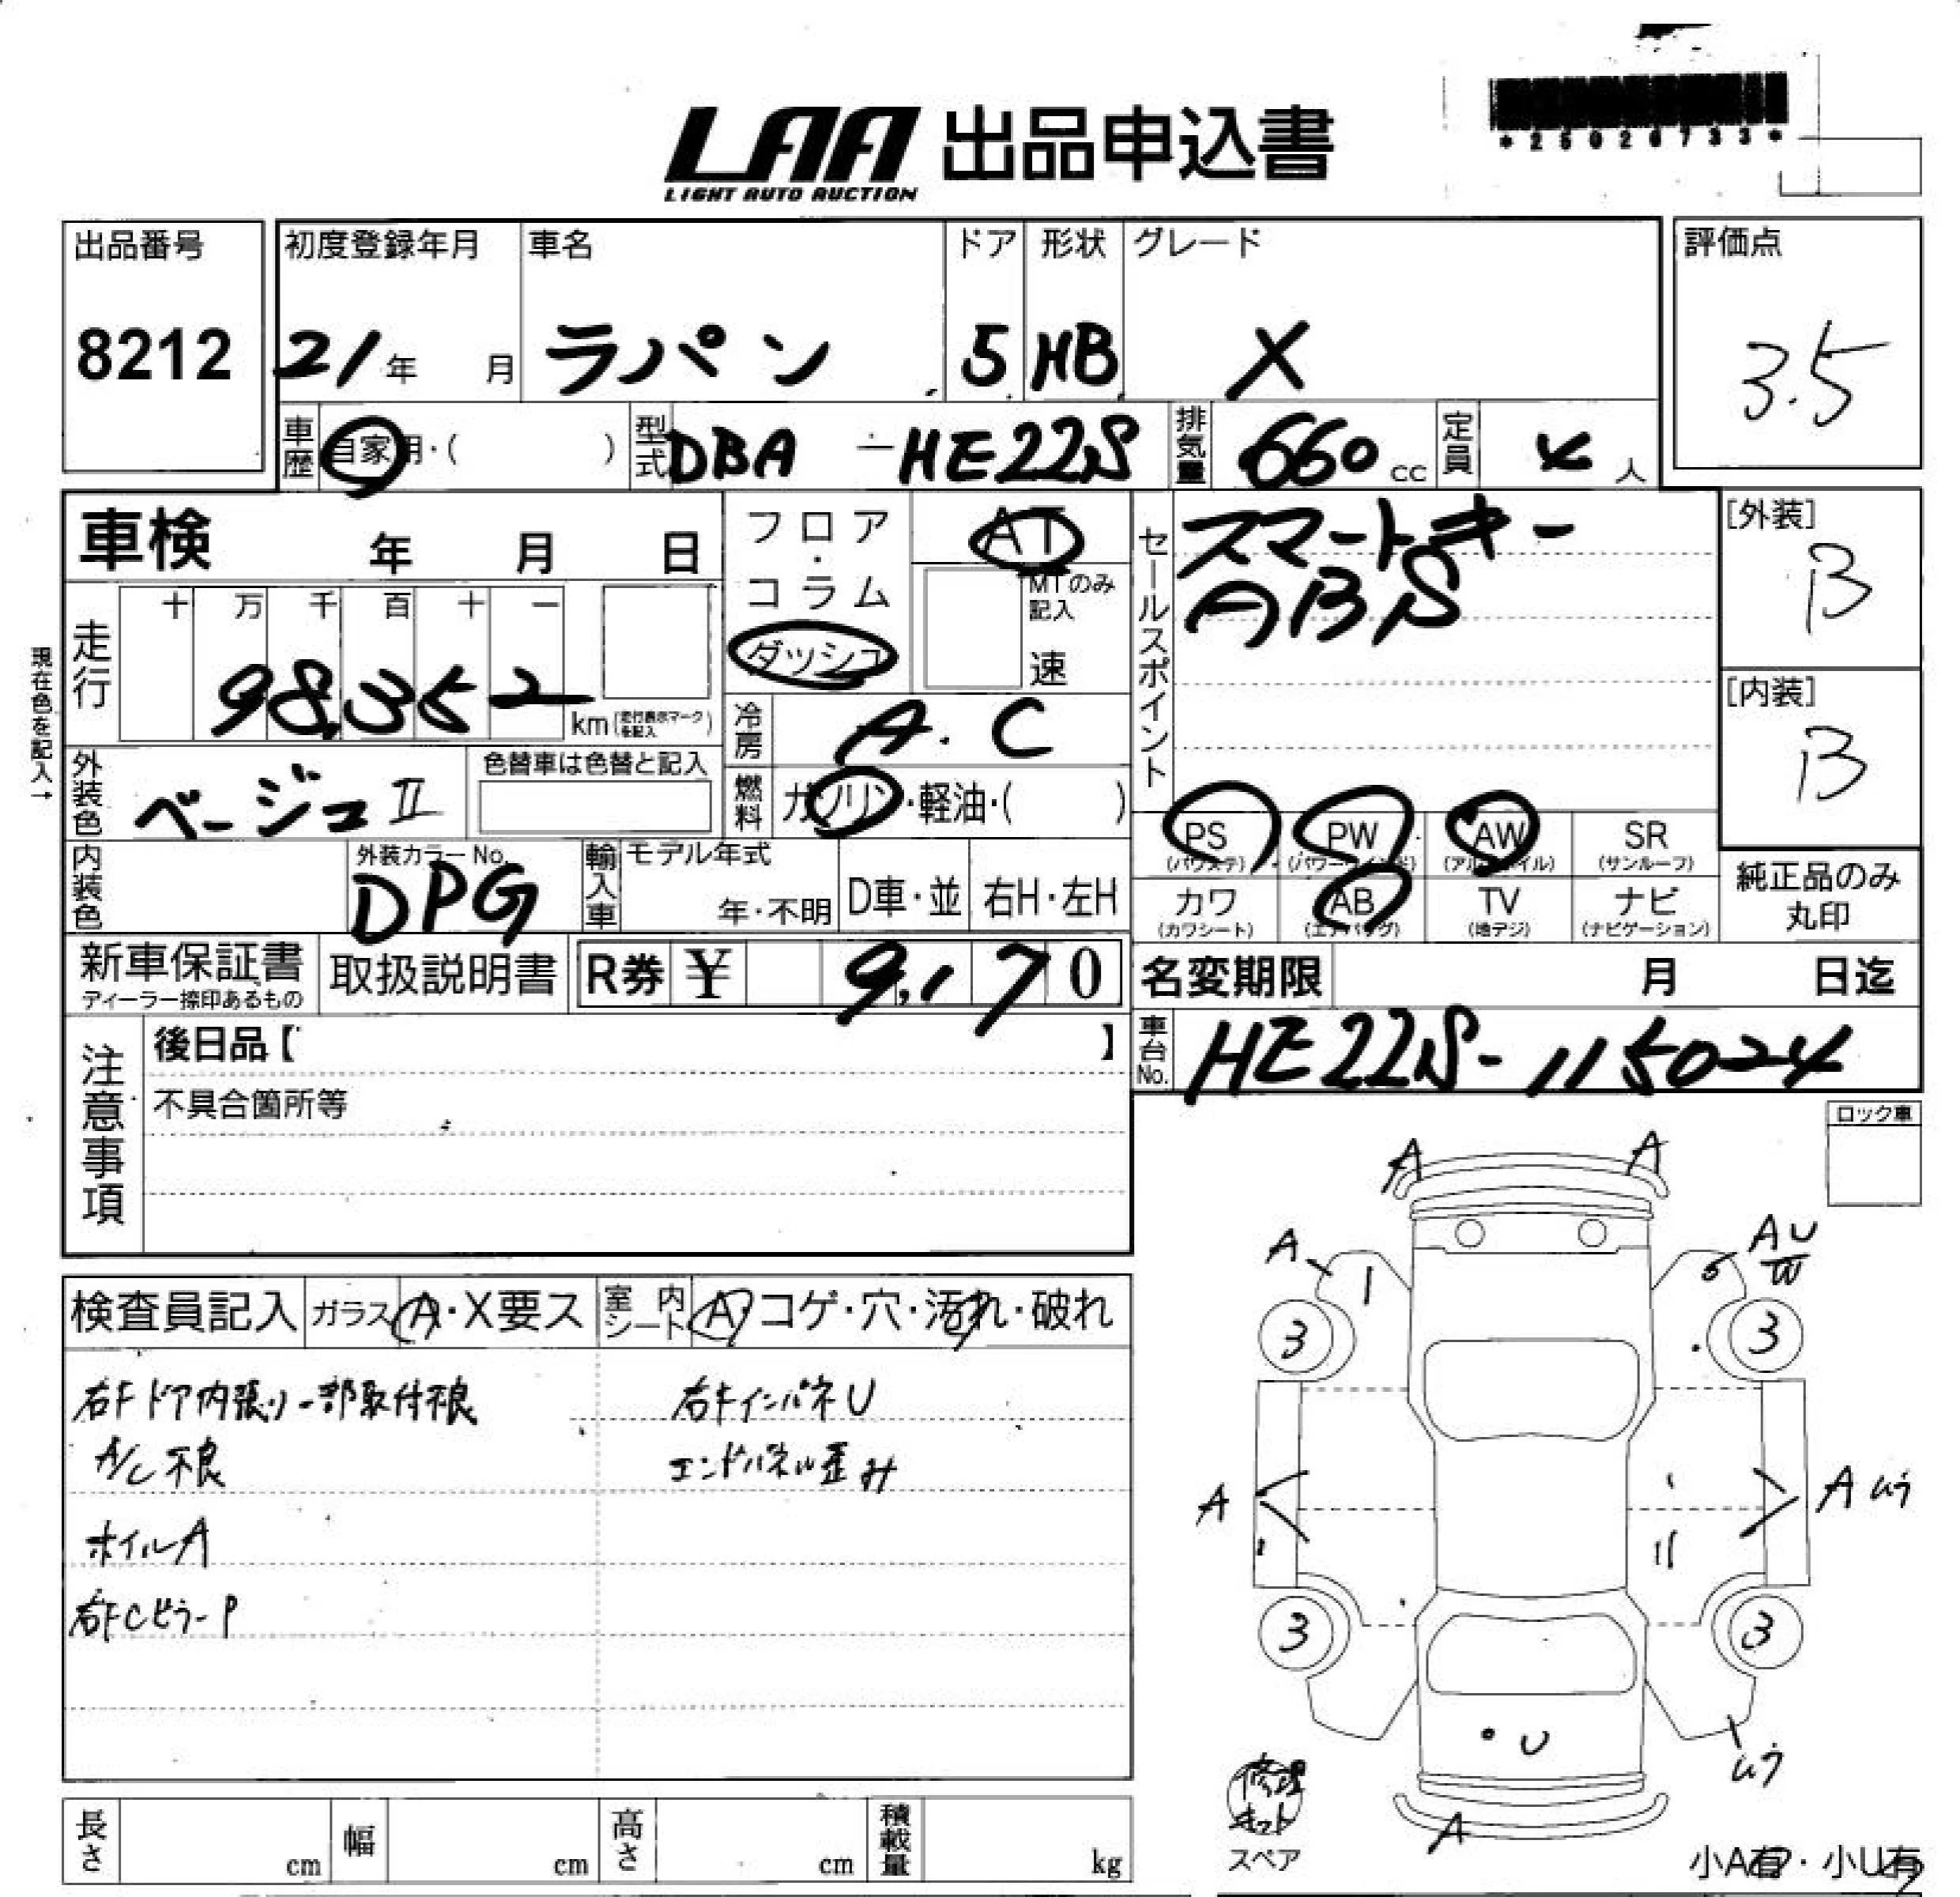 *25026733*
LAA 出品申込書
LIGHT AUTO AUCTION
出品番号
8212
初度登録年月
21年 月
車名
ラパン
ドア
5
形状
HB
グレード
X
評価点
3.5
車歴
自家用・( )
型式
DBA -HE22S
排気量
660cc
定員
4人
車検 年 月 日
フロア・コラム
ダッシュ
AT
MTのみ記入
速
セールスポイント
スマートキー
ABS
[外装]
B
[内装]
B
現在色を記入→
走行
十 万 千 百 十 一
98,352
km(走行表示マークを記入)
冷房
A.C
外装色
ベージュII
色替車は色替と記入
燃料
ガソリン・軽油・( )
PS
(パワステ)
PW
(パワーウインド)
AW
(アルミホイル)
SR
(サンルーフ)
カワ
(カワシート)
AB
(エアバッグ)
TV
(地デジ)
ナビ
(ナビゲーション)
純正品のみ
丸印
内装色
外装カラーNo.
DPG
輸入車
モデル年式
年・不明
D車・並
右H・左H
新車保証書
ディーラー捺印あるもの
取扱説明書
R券 ¥ 9,170
名変期限 月 日迄
車台No.
HE22S-115024
注意事項
後日品【 】
不具合箇所等
ロック車
検査員記入
ガラス A・X要ス
室内シート A・コゲ・穴・汚れ・破れ
右Fドア内張り一部取付不良
A/C不良
ホイルA
右FCピラーP
右Fインパネ U
エンドパネル歪み
A
A
A
AU
W
3
3
A
Aムラ
3
3
U
ムラ
A
修理キット
スペア
小A有・小U有
長さ cm
幅 cm
高さ cm
積載量 kg